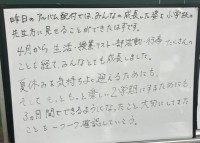 昨日のアルバム配付では、みんなの成長した姿を小学校の
先生方に見せることができたはずです。
4月から生活・授業・テスト・部活動・行事 たくさんの
ことを経て、みんなとても成長しました。
夏休みを気持ちよく迎えるためにも、
そして もっともっと楽しい2学期にするためにも、
3ヵ月間でできるようになったこと 大切にしてきた
ことを 一つ一つ 確認していこう。